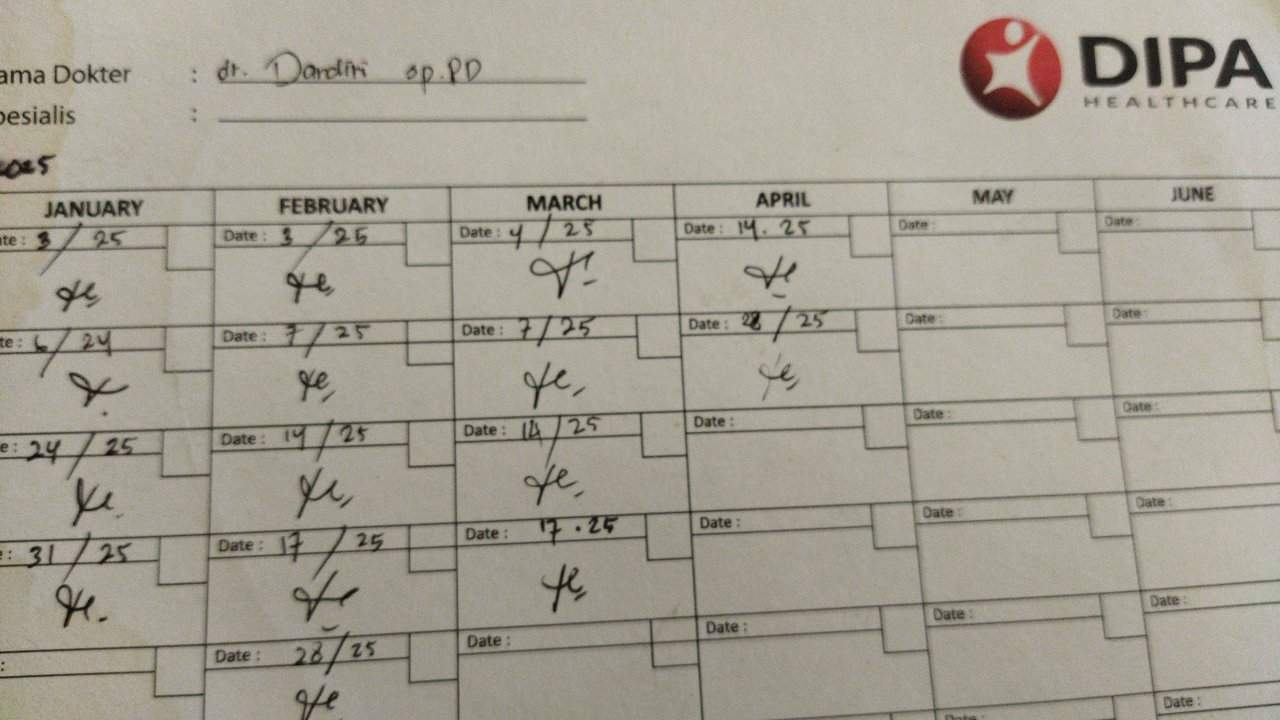 ama Dokter : dr. Dardiri sp.PD
DIPA
HEALTHCARE
pesialis :
2025
JANUARY FEBRUARY MARCH APRIL MAY JUNE
ate : 3 / 25 Date : 3 / 25 Date : 4 / 25 Date : 14 . 25 Date : Date :
te : 6 / 24 Date : 7 / 25 Date : 7 / 25 Date : 28 / 25 Date : Date :
e : 24 / 25 Date : 14 / 25 Date : 14 / 25 Date : Date : Date :
e : 31 / 25 Date : 17 / 25 Date : 17 . 25 Date : Date : Date :
: Date : 28 / 25 Date : Date : Date : Date :
Date : Date :